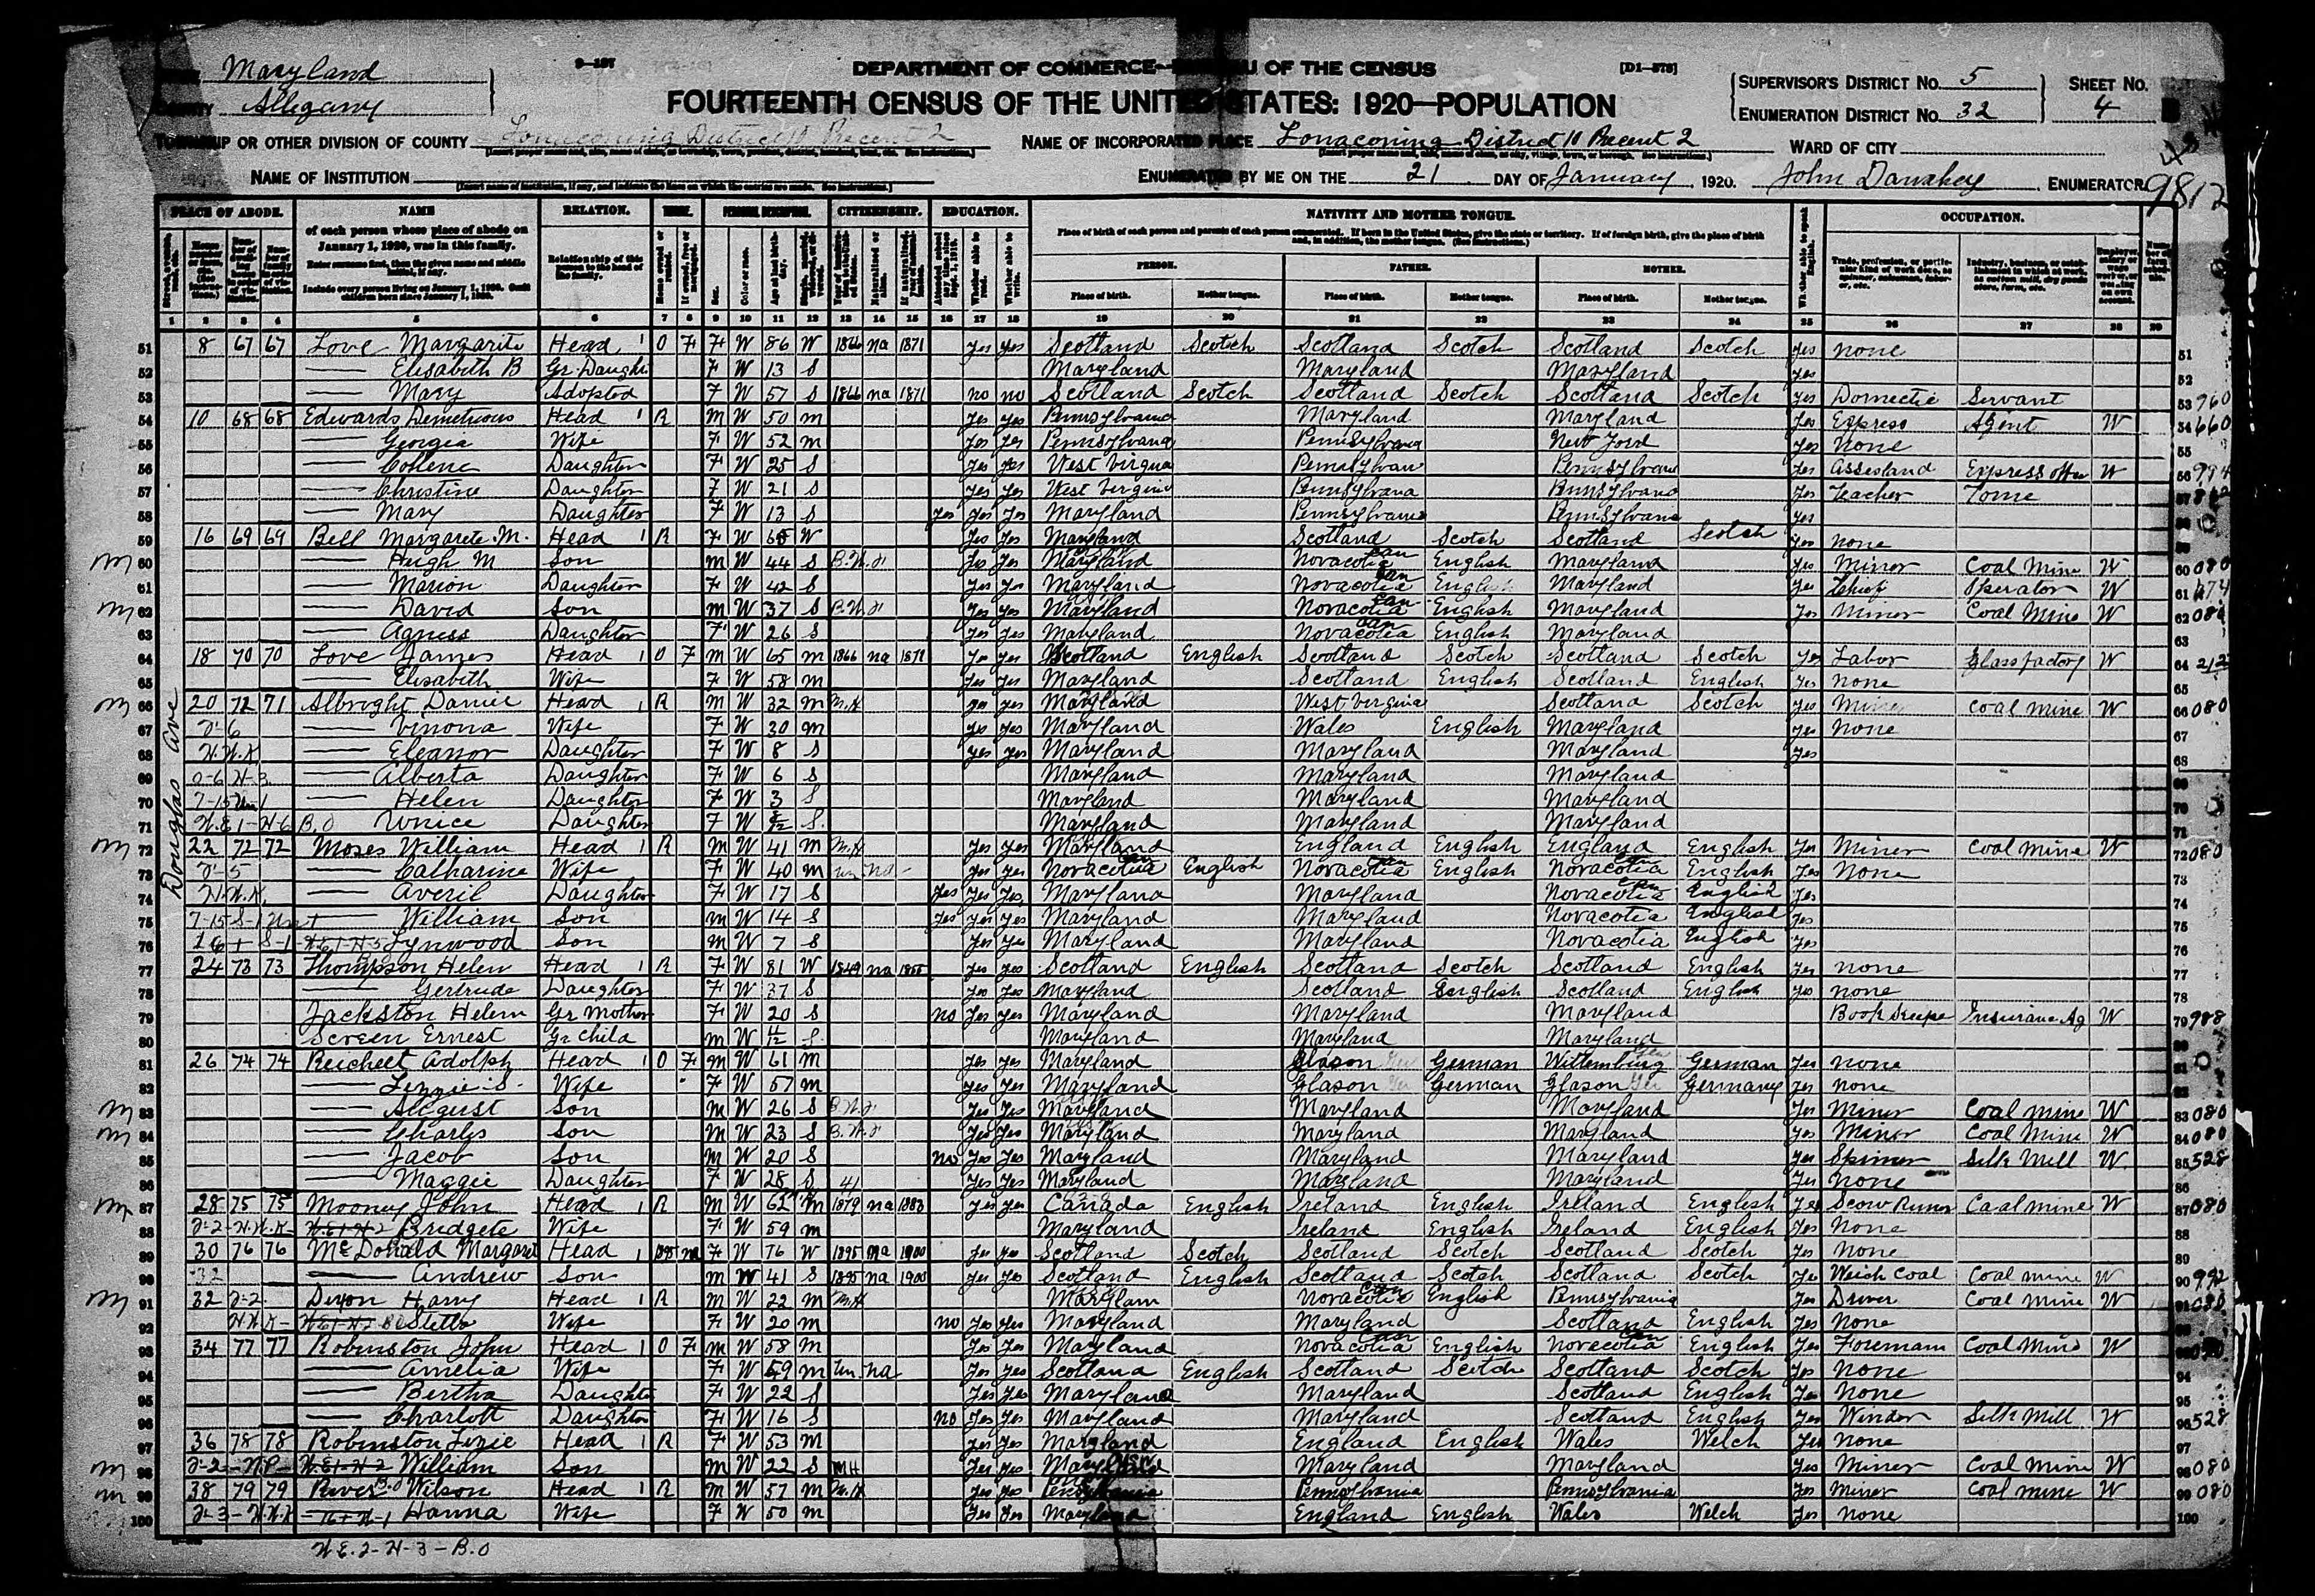 9—137
DEPARTMENT OF COMMERCE— OF THE CENSUS
[D1—578]
Maryland
COUNTY Allegany
FOURTEENTH CENSUS OF THE UNITED STATES: 1920—POPULATION
SUPERVISOR'S DISTRICT No. 5
ENUMERATION DISTRICT No. 32
SHEET No. 4
TOWNSHIP OR OTHER DIVISION OF COUNTY Lonaconing District 11 Precent 2
NAME OF INCORPORATED PLACE Lonaconing District 10 Precent 2
WARD OF CITY
NAME OF INSTITUTION
ENUMERATED BY ME ON THE 21 DAY OF January, 1920. John ENUMERATOR
9812
PLACE OF ABODE. NAME RELATION. PERSONAL DESCRIPTION. CITIZENSHIP. EDUCATION. NATIVITY AND MOTHER TONGUE. OCCUPATION.
of each person whose place of abode on January 1, 1920, was in this family.
Enter surname first, then the given name and middle initial, if any.
Include every person living on January 1, 1920. Omit children born since January 1, 1920.
Relationship of this person to the head of the family.
Place of birth of each person and parents of each person enumerated. If born in the United States, give the state or territory. If of foreign birth, give the place of birth and, in addition, the mother tongue. (See instructions.)
PERSON. FATHER. MOTHER.
Place of birth. Mother tongue. Place of birth. Mother tongue. Place of birth. Mother tongue.
1 2 3 4 5 6 7 8 9 10 11 12 13 14 15 16 17 18 19 20 21 22 23 24 25 26 27 28 29
Douglas Ave
51 8 67 67 Love Margarite Head O F F W 86 W 1866 na 1871 Yes Yes Scotland Scotch Scotland Scotch Scotland Scotch Yes none 51
52 Elisabith B Gr Daughter F W 13 S Maryland Maryland Maryland Yes 52
53 Mary Adopted F W 57 S 1866 na 1871 no no Scotland Scotch Scotland Scotch Scotland Scotch Yes Domectic Servant 53 960
54 10 68 68 Edwards Demetrious Head R M W 50 M Yes Yes Pennsylvania Maryland Maryland Yes Express Agent W 54 660
55 Georgea Wife F W 52 M Yes Yes Pennsylvana Pennsylvana New York Yes None 55
56 Collene Daughter F W 25 S Yes Yes West Virginia Pennsylvan Pennsylvan Yes Express W 56
57 Christine Daughter F W 21 S Yes Yes West Virginia Pennsylvana Pennsylvana Yes Teacher 57
58 Mary Daughter F W 13 S Yes Yes Yes Maryland Pennsylvania Pennsylvania Yes 58
59 16 69 69 Bell Margarete M. Head R F W 65 W Yes Yes Maryland Scotland Scotch Scotland Scotch Yes none 59
60 Hugh M Son M W 44 S Yes Yes Maryland Novacotia English Maryland Yes Minor Coal Mine W 60 080
61 Marion Daughter F W 42 S Yes Yes Maryland Novacotia English Maryland Yes Chief Operator W 61 674
62 David Son M W 37 S Yes Yes Maryland Novacotia English Maryland Yes Minor Coal Mine W 62 080
63 Agness Daughter F W 26 S Yes Yes Maryland Novacotia English Maryland 63
64 18 70 70 Love James Head O F M W 65 M 1866 na 1871 Yes Yes Scotland English Scotland Scotch Scotland Scotch Yes Labor Glass factory W 64 212
65 Elisabeth Wife F W 58 M Yes Yes Maryland Scotland English Scotland English Yes none 65
66 20 72 71 Albright Daniel Head R M W 32 M Yes Yes Maryland West Virginia Scotland Scotch Yes Miner Coal mine W 66 080
67 Vinona Wife F W 30 M Yes Yes Maryland Wales English Maryland Yes none 67
68 Eleanor Daughter F W 8 S Yes Yes Maryland Maryland Maryland Yes 68
69 Alberta Daughter F W 6 S Maryland Maryland Maryland 69
70 Helen Daughter F W 3 S Maryland Maryland Maryland 70
71 Unice Daughter F W S. Maryland Maryland Maryland 71
72 22 72 72 Moses William Head R M W 41 M Yes Yes Maryland England English England English Yes Miner Coal mine W 72 080
73 Catharine Wife F W 40 M un na Yes Yes Novacotia English Novacotia English Novacotia English Yes None 73
74 Averil Daughter F W 17 S Yes Yes Yes Maryland Maryland Novacotia English Yes 74
75 William Son M W 14 S Yes Yes Yes Maryland Maryland Novacotia English Yes 75
76 Lynwood Son M W 7 S Yes Yes Maryland Maryland Novacotia English Yes 76
77 24 73 73 Thompson Helen Head R F W 81 W 1849 na 1855 Yes Yes Scotland English Scotland Scotch Scotland English Yes none 77
78 Gertrude Daughter F W 37 S Yes Yes Maryland Scotland English Scotland English Yes none 78
79 Jackston Helen Gr Mother F W 20 S no Yes Yes Maryland Maryland Maryland Book Insurance Ag W 79 988
80 Screen Ernest Gr Child M W S. Maryland Maryland Maryland 80
81 26 74 74 Reichelt Adolph Head O F M W 61 M Yes Yes Maryland Glason German Wittemburg German Yes none 81
82 Lizzie S. Wife F W 57 M Yes Yes Maryland Glason German Glason Germany Yes none 82
83 August Son M W 26 S Yes Yes Maryland Maryland Maryland Yes Miner Coal mine W 83 080
84 Charles Son M W 23 S Yes Yes Maryland Maryland Maryland Yes Miner Coal Mine W 84 080
85 Jacob Son M W 20 S no Yes Yes Maryland Maryland Maryland Yes Silk Mill W 85 528
86 Maggie Daughter F W 28 S Yes Yes Maryland Maryland Maryland Yes None 86
87 28 75 75 Mooney John Head R M W 62 M 1879 na 1883 Yes Yes Canada English Ireland English Ireland English Yes Coal mine W 87 080
88 Bridgete Wife F W 59 M Maryland Ireland English Ireland English Yes None 88
89 30 76 76 McDonald Margaret Head 1895 na F W 76 W 1895 na 1900 Yes Yes Scotland Scotch Scotland Scotch Scotland Scotch Yes None 89
90 32 Andrew Son M W 41 S 1895 na 1900 Yes Yes Scotland English Scotland Scotch Scotland Scotch Yes Weich Coal Coal mine W 90 992
91 32 Dixon Harry Head R M W 22 M Marylam Novacotia English Pennsylvania Yes Driver Coal Mine W 91 080
92 Stella Wife F W 20 M no Yes Yes Maryland Maryland Scotland English Yes None 92
93 34 77 77 Robinston John Head O F M W 58 M Yes Yes Maryland Novacotia English Novacotia English Yes Foremam Coal Mine W 93
94 Amelia Wife F W 59 M un na Yes Yes Scotland English Scotland Scotch Scotland Scotch Yes None 94
95 Bertha Daughter F W 22 S Yes Yes Maryland Maryland Scotland English Yes None 95
96 Charlott Daughter F W 16 S no Yes Yes Maryland Maryland Scotland English Yes Winder Silk Mill W 96 528
97 36 78 78 Robinston Lizie Head R F W 53 M Yes Yes Maryland England English Wales Welch Yes none 97
98 William Son M W 22 S Yes Yes Maryland Maryland Maryland Yes Miner Coal Mine W 98 080
99 38 79 79 River Wilson Head R M W 57 M Yes Yes Pennsylvania Pennsylvania Pennsylvania Yes Miner Coal mine W 99 080
100 Hanna Wife F W 50 M Yes Yes Maryland England English Wales Welch Yes none 100